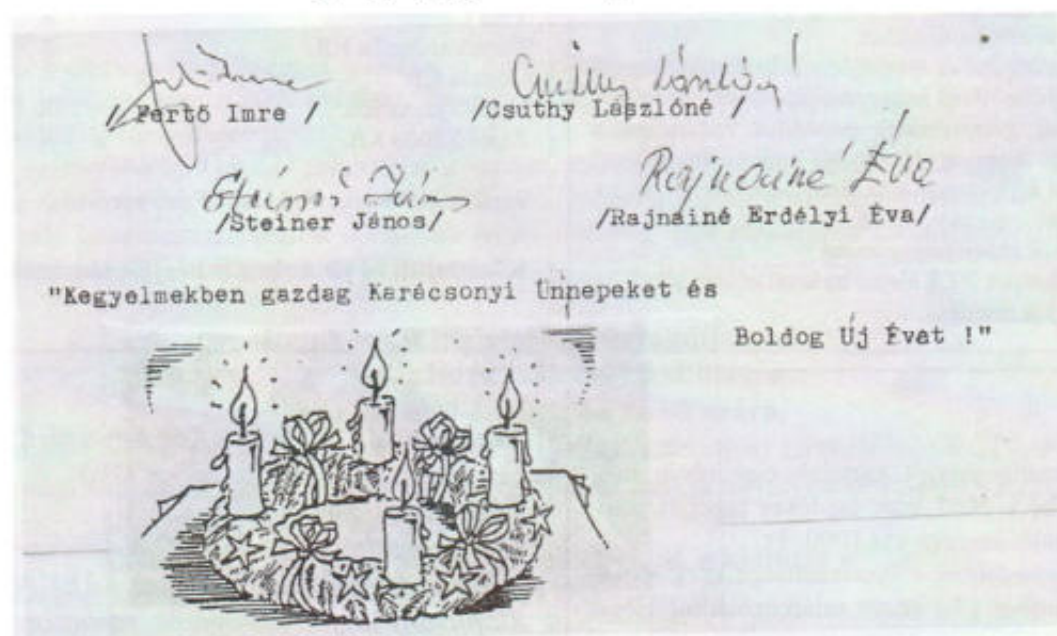 / Fertő Imre /
Csuthy Lászlóné
/Csuthy Lászlóné /
Steiner János
/Steiner János/
Rajnainé Éva
/Rajnainé Erdélyi Éva/
"Kegyelmekben gazdag Karácsonyi Ünnepeket és
Boldog Új Évat !"